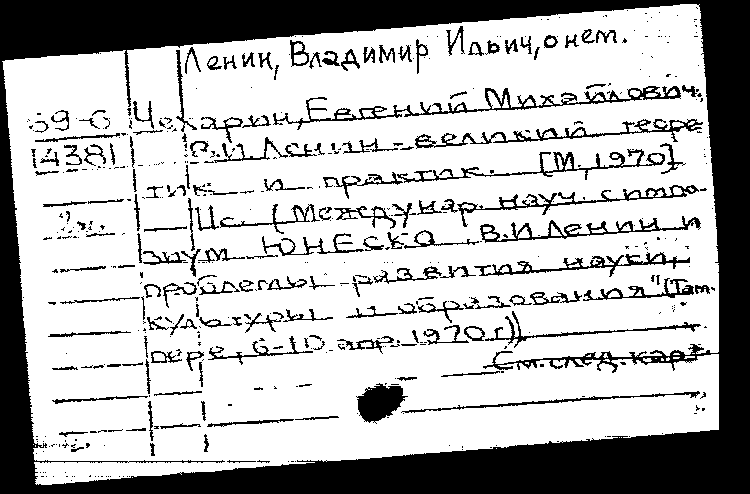 Ленин, Владимир Ильич, о нем.
Чехарин, Евгений Михайлович.
69-6
14381
В.И Ленин - великий теоре-
тик и практик. [М., 1970]
11с. (Междунар. науч. симпо-
зиум ЮНЕСКО "В.И Ленин и
проблемы развития науки,
культуры и образования" (Там-
пере, 6-10 апр. 1970г))
См. след. карт.